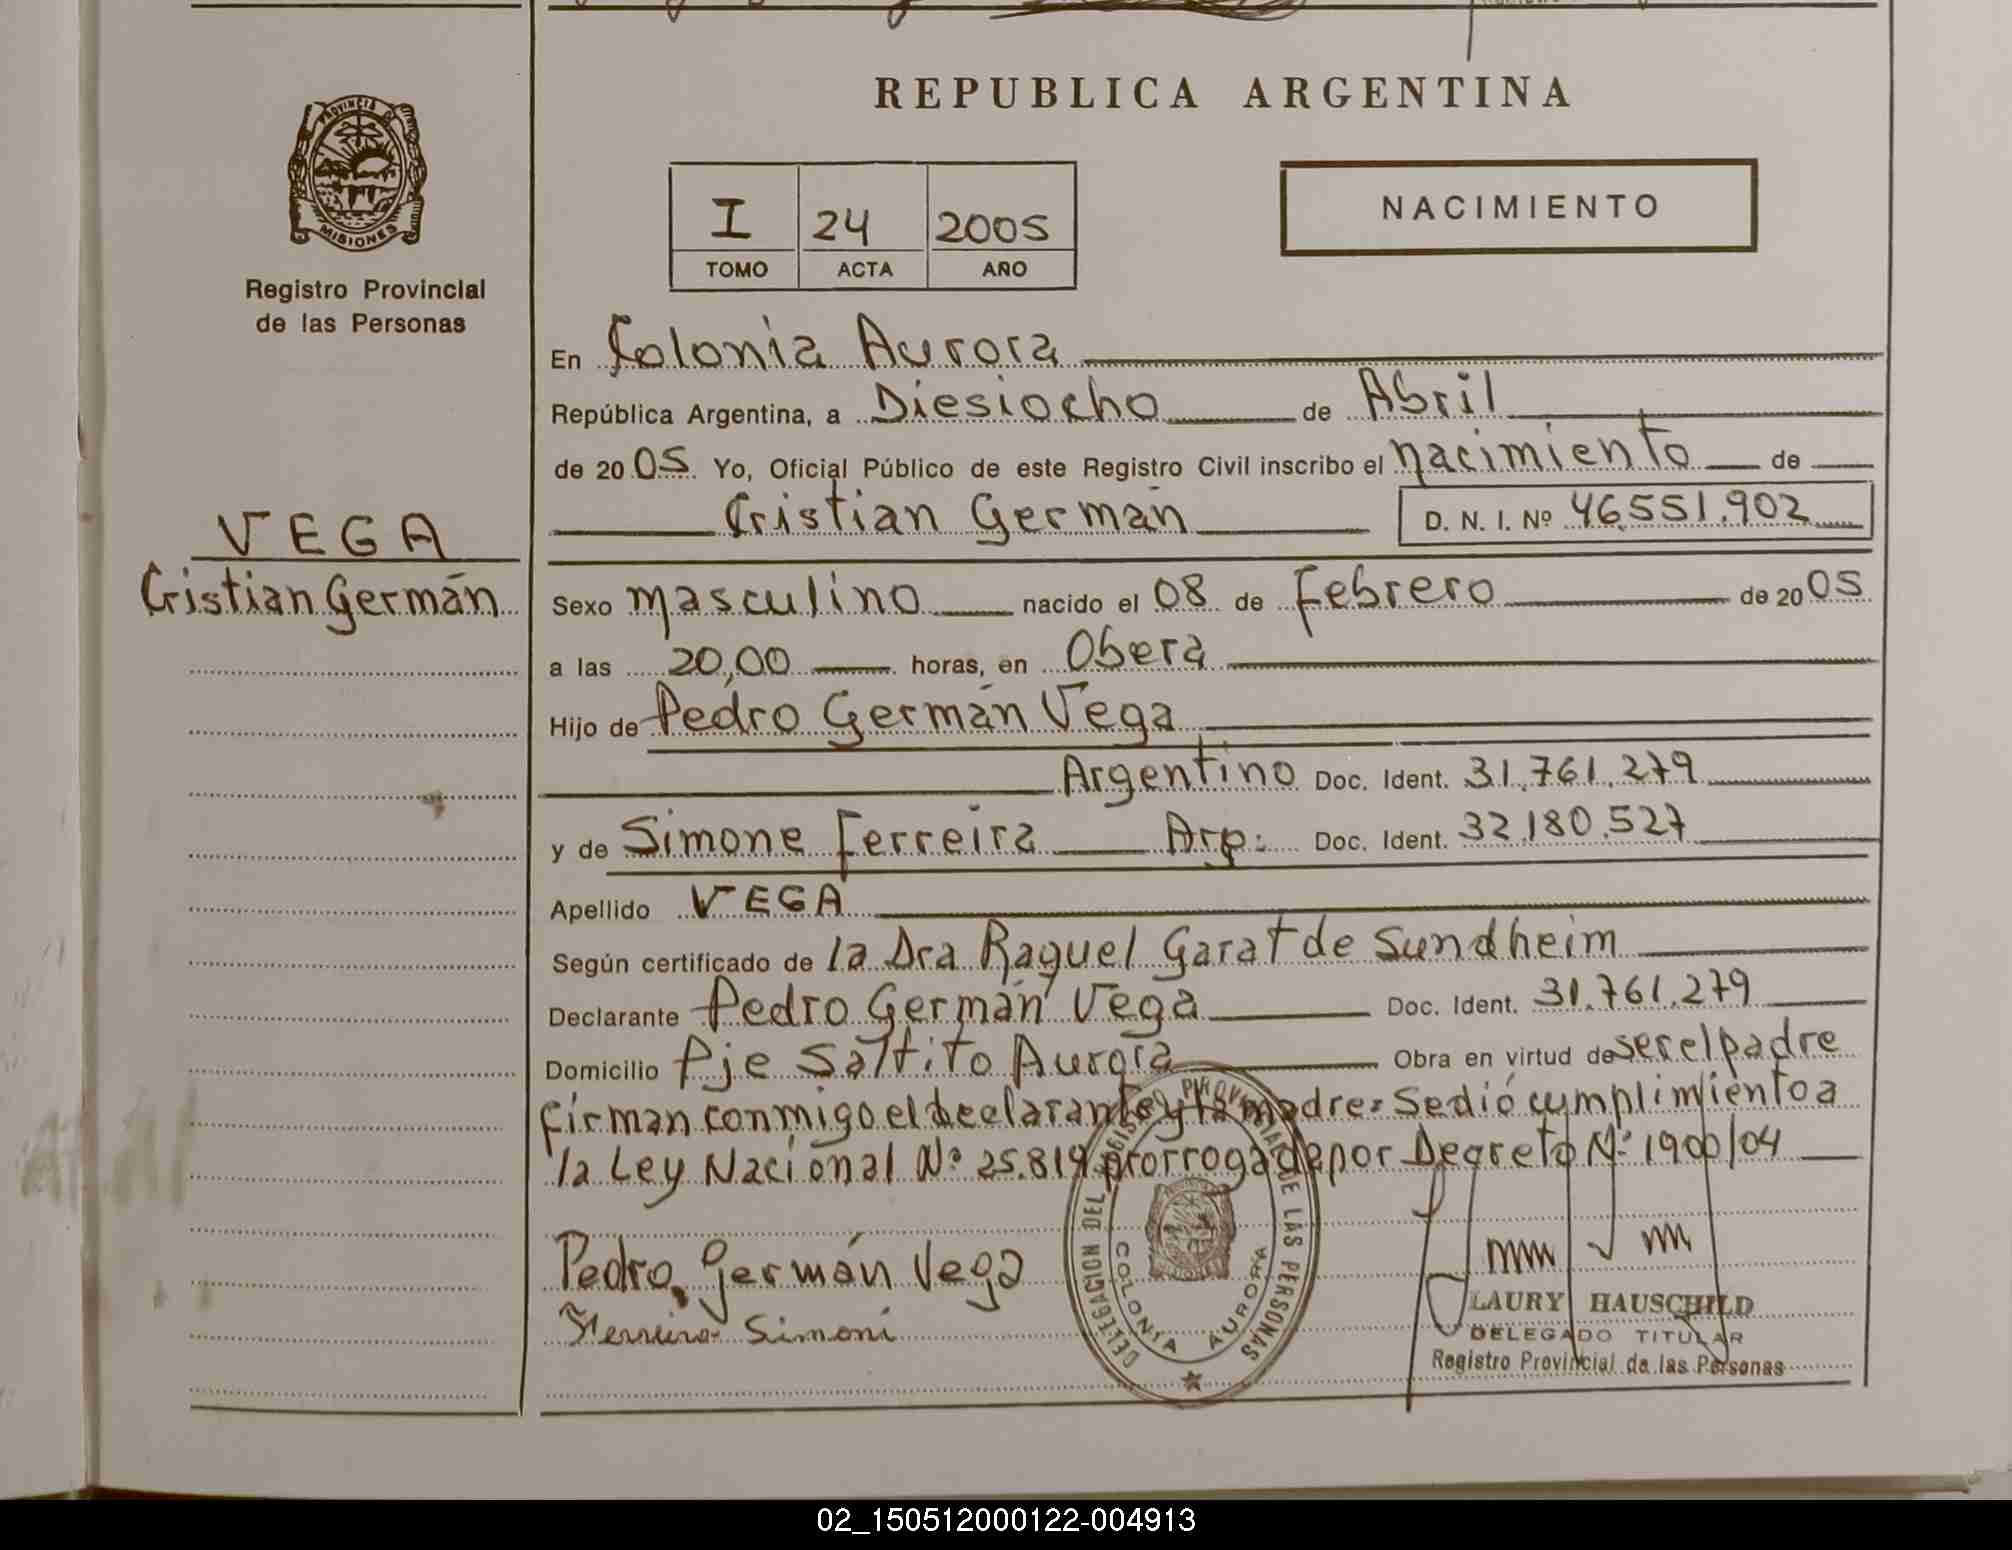 REPUBLICA ARGENTINA
PROVINCIA DE
MISIONES
Registro Provincial
de las Personas
I 24 2005
TOMO ACTA AÑO
NACIMIENTO
En Colonia Aurora
República Argentina, a Diesiocho de Abril
de 2005. Yo, Oficial Público de este Registro Civil inscribo el nacimiento de
Cristian Germán D. N. I. Nº 46.551.902
VEGA
Cristian Germán
Sexo masculino nacido el 08 de Febrero de 2005
a las 20,00 horas, en Obera
Hijo de Pedro Germán Vega
Argentino Doc. Ident. 31.761.279
y de Simone Ferreira Arg: Doc. Ident. 32.180.527
Apellido VEGA
Según certificado de la Dra Raquel Garat de Sundheim
Declarante Pedro Germán Vega Doc. Ident. 31.761.279
Domicilio Pje Saltito Aurora Obra en virtud de ser el padre
firman conmigo el declarante y la madre: Se dió cumplimiento a
la Ley Nacional Nº 25.819 prorrogada por Decreto Nº 1900/04
Pedro Germán Vega
Ferreira Simoni
DELEGACION DEL REGISTRO PROVINCIAL DE LAS PERSONAS
COLONIA AURORA
LAURY HAUSCHILD
DELEGADO TITULAR
Registro Provincial de las Personas
02_150512000122-004913